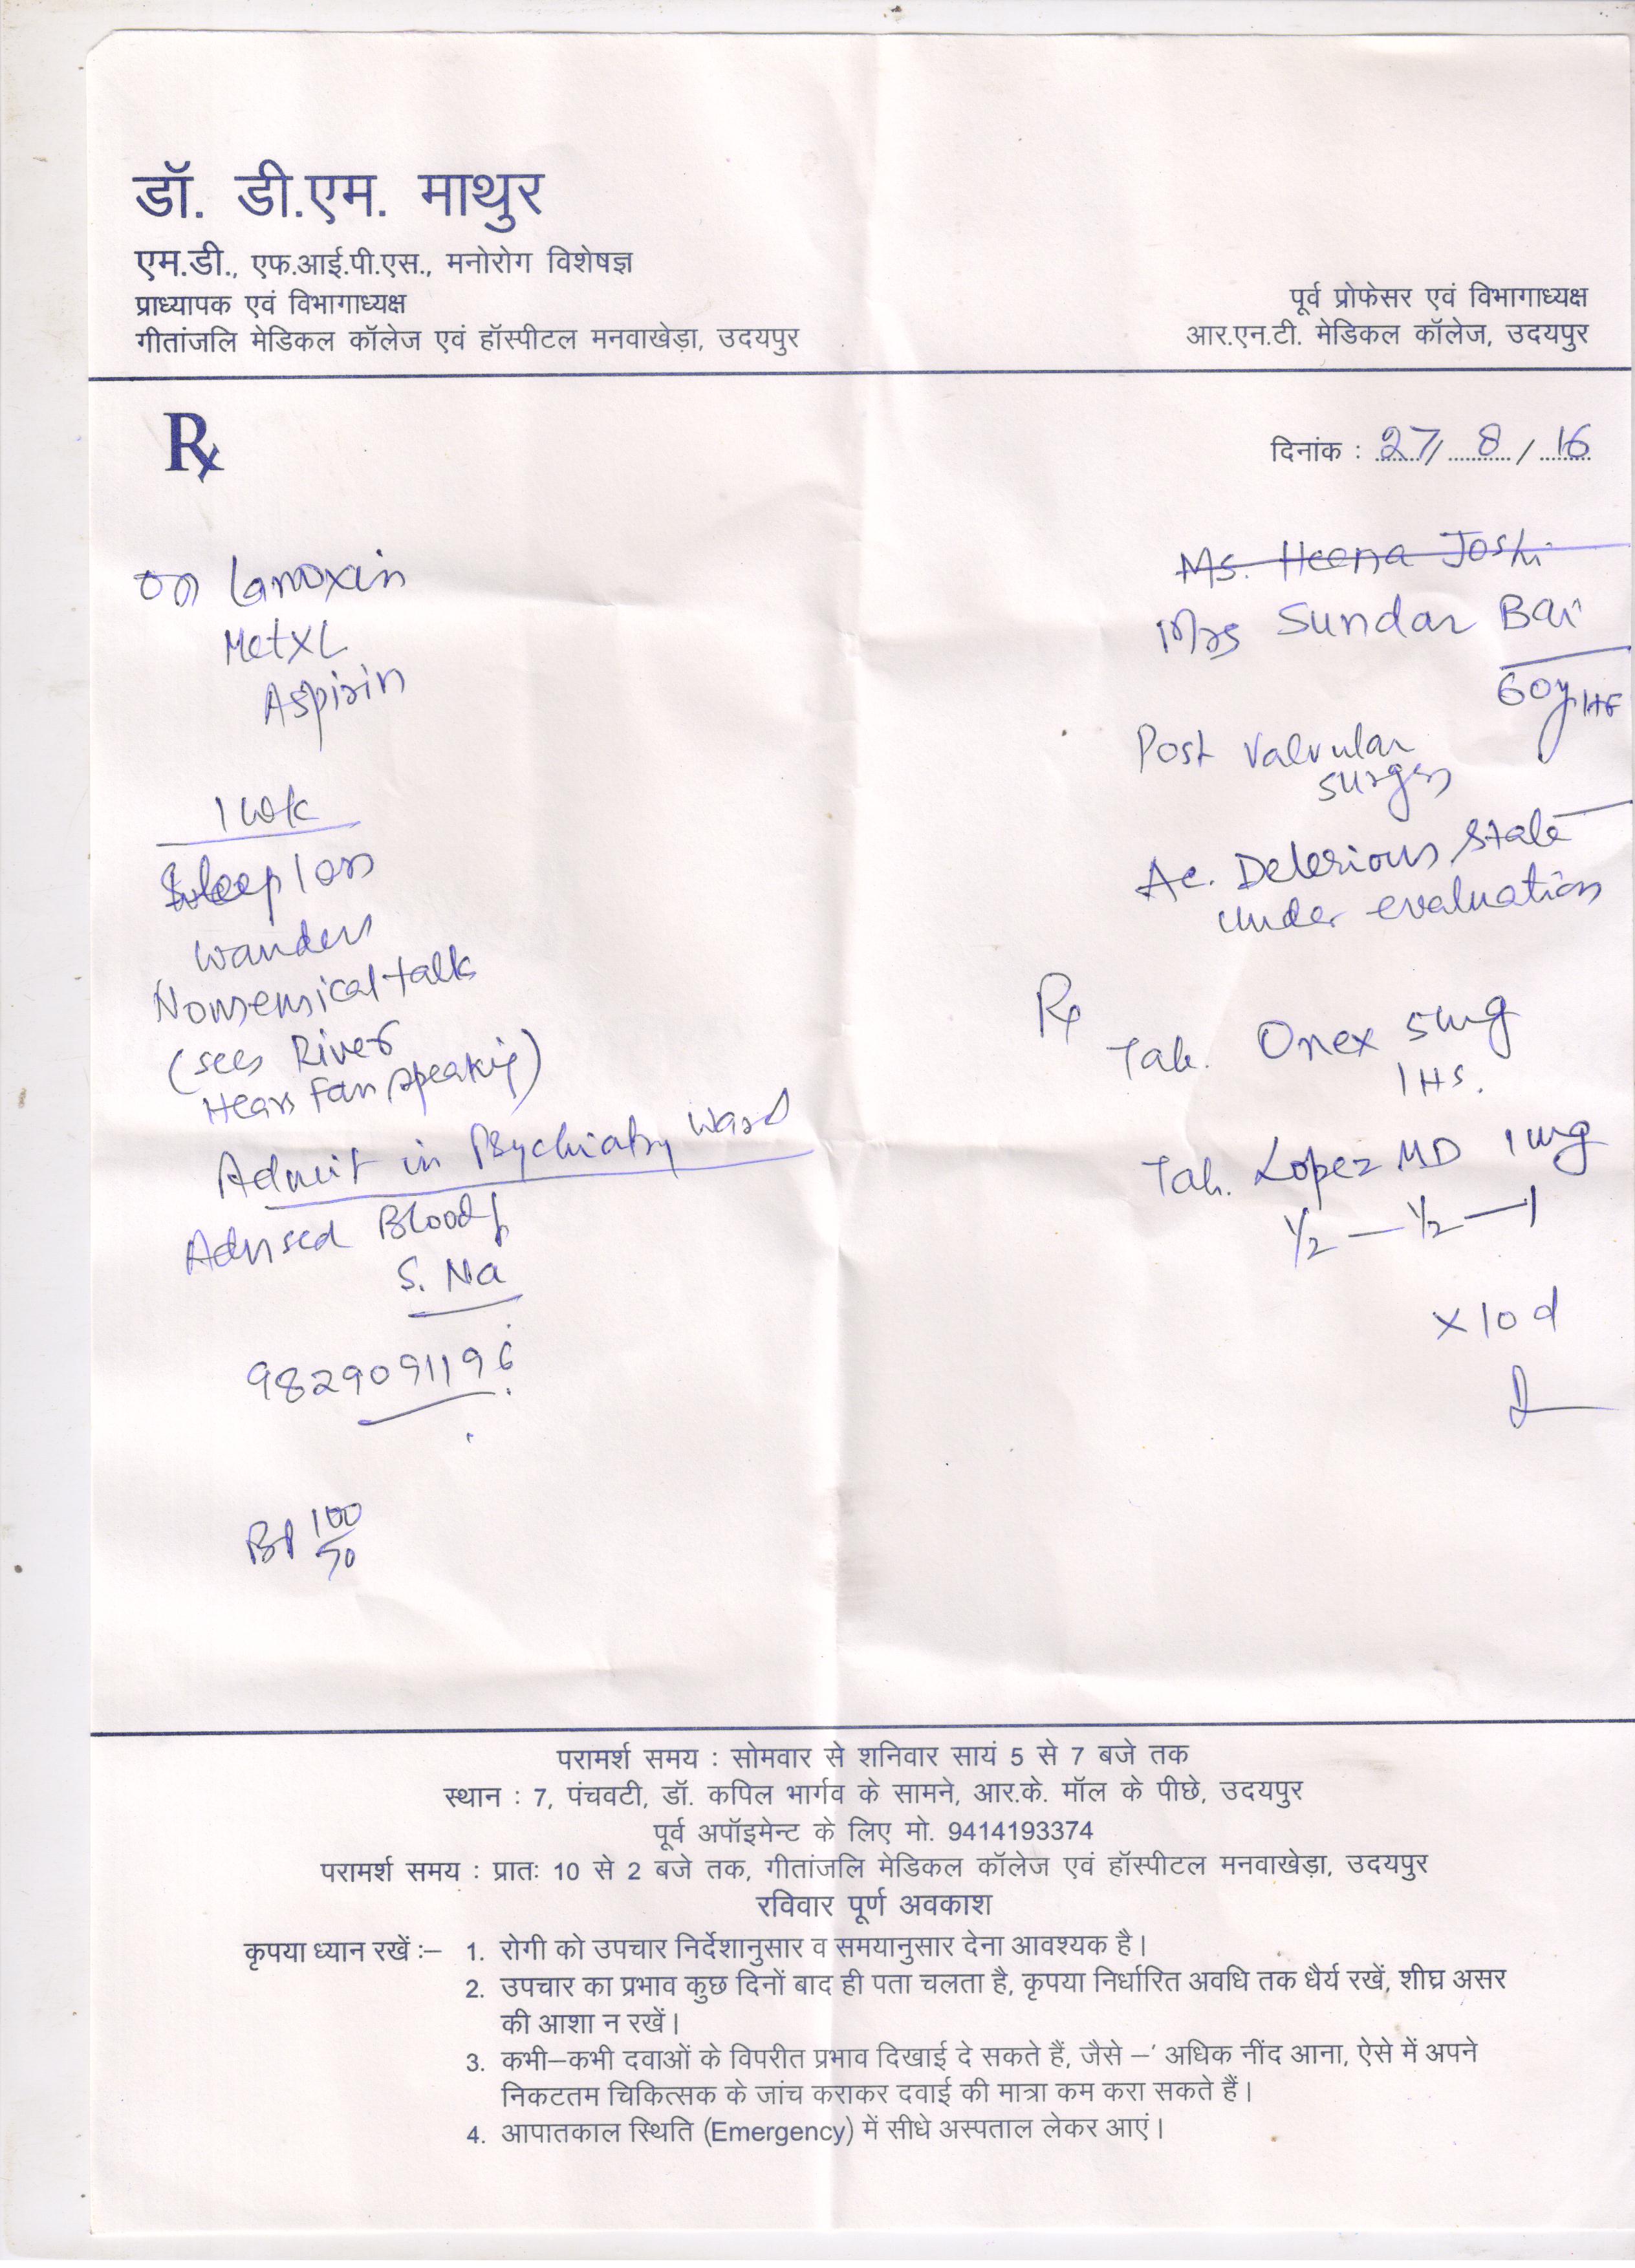 डॉ. डी.एम. माथुर
एम.डी., एफ.आई.पी.एस., मनोरोग विशेषज्ञ
प्राध्यापक एवं विभागाध्यक्ष
गीतांजलि मेडिकल कॉलेज एवं हॉस्पीटल मनवाखेड़ा, उदयपुर
पूर्व प्रोफेसर एवं विभागाध्यक्ष
आर.एन.टी. मेडिकल कॉलेज, उदयपुर
Rx
दिनांक : 27/ 8 / 16
on Lanoxin
Met XL
Aspirin
1 wk
Sleep loss
wanders
Nonsensical talks
(sees River
Hears Fan speaking)
Admit in Psychiatry Ward
Advised Blood
S. Na
9829091196
BP 100/70
Ms. Heena Joshi
Mrs Sundar Bai
60y
Post Valvular
surgery
Ac. Delerious State
under evaluation
Rx
Tab. Onex 5mg
1 HS.
Tab. Lopez MD 1mg
1/2 — 1/2 — 1
x 10 d
परामर्श समय : सोमवार से शनिवार सायं 5 से 7 बजे तक
स्थान : 7, पंचवटी, डॉ. कपिल भार्गव के सामने, आर.के. मॉल के पीछे, उदयपुर
पूर्व अपॉइमेन्ट के लिए मो. 9414193374
परामर्श समय : प्रातः 10 से 2 बजे तक, गीतांजलि मेडिकल कॉलेज एवं हॉस्पीटल मनवाखेड़ा, उदयपुर
रविवार पूर्ण अवकाश
कृपया ध्यान रखें :– 1. रोगी को उपचार निर्देशानुसार व समयानुसार देना आवश्यक है।
2. उपचार का प्रभाव कुछ दिनों बाद ही पता चलता है, कृपया निर्धारित अवधि तक धैर्य रखें, शीघ्र असर
की आशा न रखें।
3. कभी–कभी दवाओं के विपरीत प्रभाव दिखाई दे सकते हैं, जैसे –' अधिक नींद आना, ऐसे में अपने
निकटतम चिकित्सक के जांच कराकर दवाई की मात्रा कम करा सकते हैं।
4. आपातकाल स्थिति (Emergency) में सीधे अस्पताल लेकर आएं।